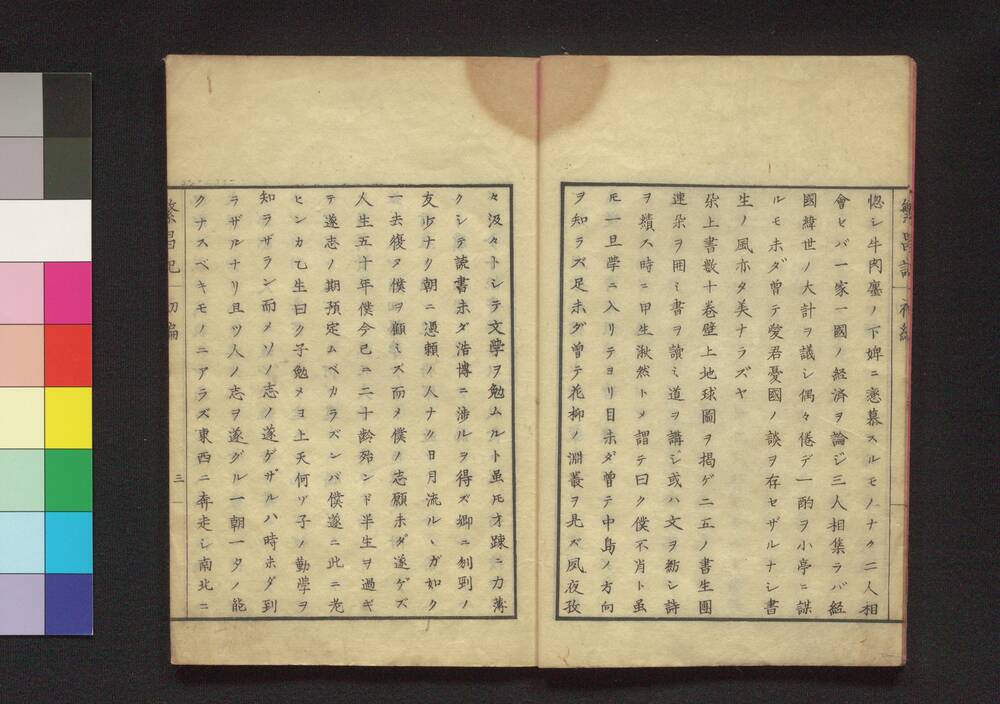 繁昌記 初編
惚シ牛肉鏖ノ下婢ニ戀慕スルモノナク二人相
會セバ一家一國ノ経済ヲ論ジ三人相集ラバ経
國緯世ノ大計ヲ議シ偶々倦デ一酌ヲ小亭ニ謀
ルモ未ダ曽テ愛君憂國ノ談ヲ存セザルナシ書
生ノ風亦タ美ナラズヤ
架上書數十卷壁上地球圖ヲ掲ゲ二五ノ書生團
連朶ヲ囲ミ書ヲ讀ミ道ヲ講ジ或ハ文ヲ紡シ詩
ヲ績ス時ニ甲生愀然トメ謂テ曰ク僕不肖ト虽
𪜈一旦學ニ入リテヨリ目未ダ曽テ中島ノ方向
ヲ知ラズ足未ダ曽テ花柳ノ淵叢ヲ見ズ夙夜孜
々汲々トシテ文學ヲ勉ムルト虽𪜈才踈ニ力薄
クシテ読書未ダ浩博ニ渉ルヲ得ズ郷ニ刎剄ノ
友少ナク朝ニ憑頼ノ人ナク日月流ルヽガ如ク
一去復タ僕ヲ顧ミズ而メ僕ノ志願未ダ遂ゲズ
人生五十年僕今已ニ二十齢殆ンド半生ヲ過ギ
テ遂志ノ期預定ムベカラズンバ僕遂ニ此ニ老
ヒンカ乙生曰ク子勉メヨ上天何ゾ子ノ勤學ヲ
知ラザラン而メソノ志ノ遂ゲザルハ時未ダ到
ラザルナリ且ツ人ノ志ヲ遂グル一朝一夕ノ能
クナスベキモノニアラズ東西ニ奔走シ南北ニ
繁昌記 初編
三